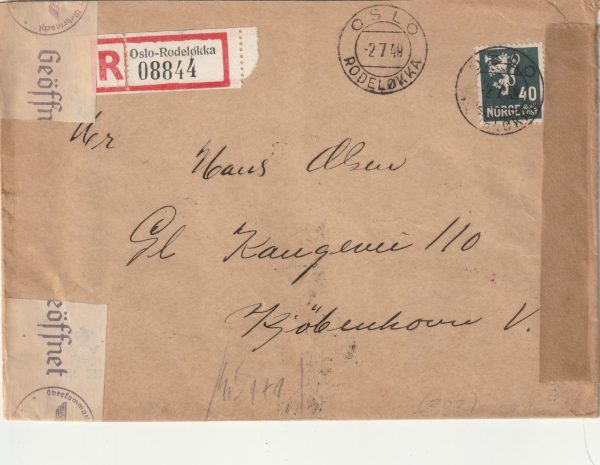 Wehrmacht
Geöffn
R
Oslo-Rodeløkka
08844
OSLO
-2.7.40
RODELØKKA
40
NORGE
Hr
Hans Olsen
Gl Kongevei 110
Kjöbenhavn V.
eöffnet
Oberkomman
(202)